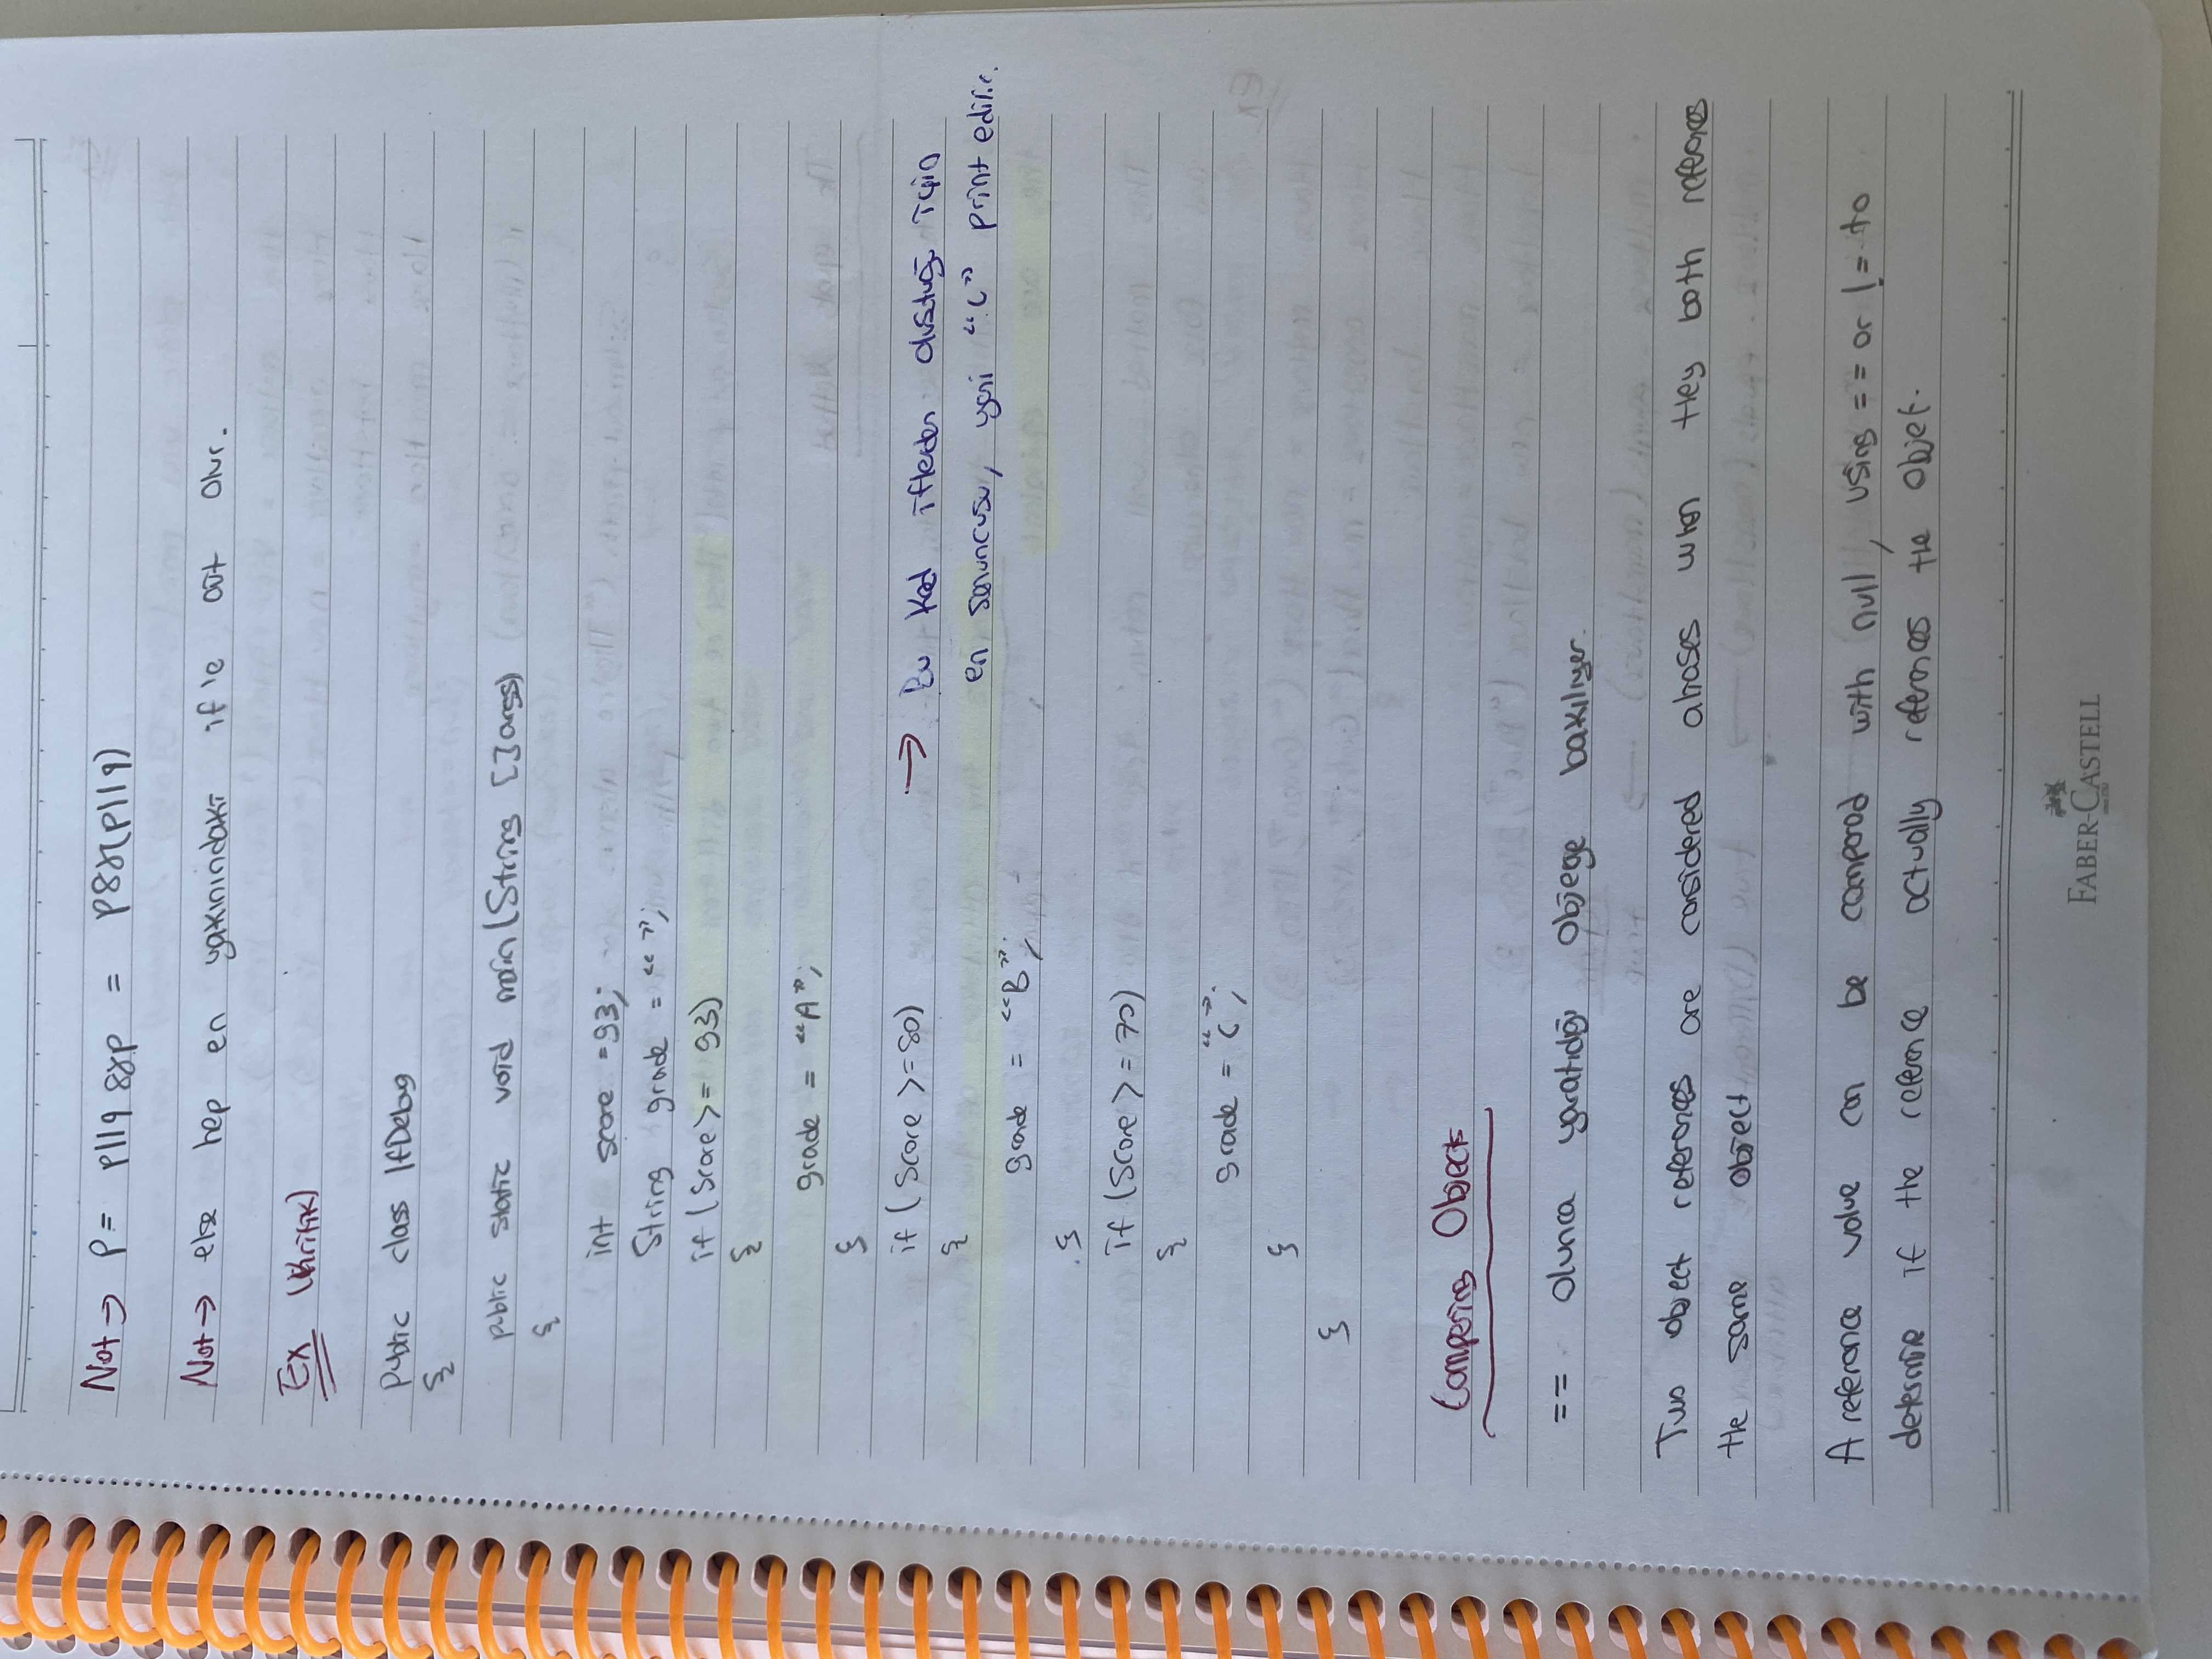 Not → P = p||q && p = p&&(p||q)
Not → else hep en yakınındaki if'e ait olur.
Ex (Kritik)
Public class IfDebug
{
public static void main(String []args)
{
int score = 93;
String grade = " ";
if (Score >= 93)
{
grade = "A";
}
if (Score >= 80)
→ Bu Kod iflerden oluştuğu için
{
en sonuncusu, yani "C" print edilir.
grade = "B";
}
if (Score >= 70)
{
grade = "C";
}
}
Comparing Objects
== Olunca yaratıdığı Objeye bakılıyor.
Two object references are considered aliases when they both references
the same object
A reference value can be compared with null, using == or != to
determine if the reference actually references the Objet.
FABER-CASTELL
since 1761